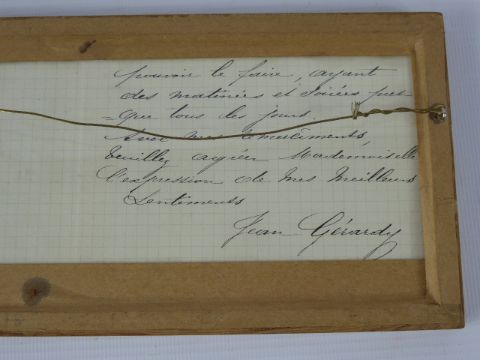 pouvoir le faire, ayant
des matinées et soirées pres
= que tous les jours.
Avec mes remerciements,
Veuillez agréer Mademoiselle
l'expression de mes meilleurs
sentiments
Jean Gérardy